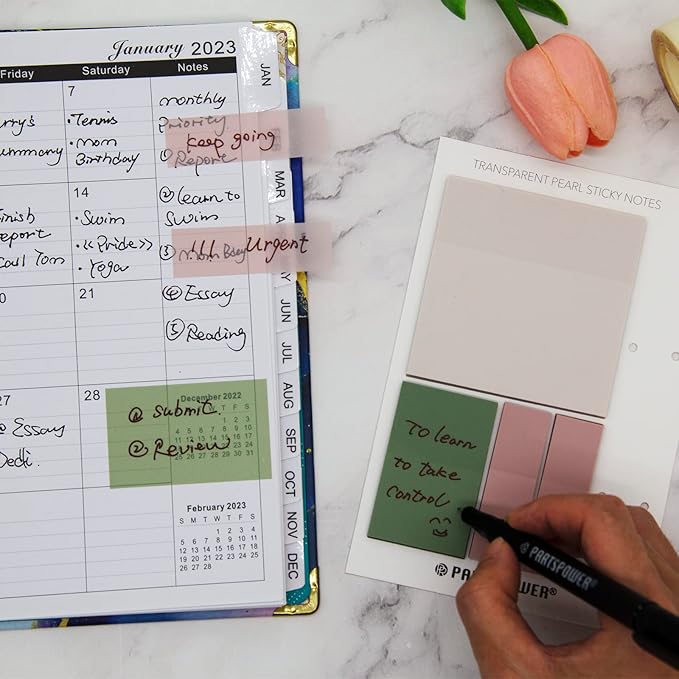 January 2023
Friday
Saturday
Notes
7
• Tennis
• mom
Birthday
monthly
Priority
① Report
keep going
ummary
14
• Swim
• 《Pride》
• Yoga
② learn to
Swim
inish
eport
Call Tom
③ mom
!!! Urgent
21
④ Essay
⑤ Reading
27
Essay
28
① Submit.
② Review
December 2022
S M T W T F S
February 2023
S M T W T F S
1 2 3 4
5 6 7 8 9 10 11
12 13 14 15 16 17 18
19 20 21 22 23 24 25
26 27 28
JAN
MAR
JUN
JUL
AUG
SEP
OCT
NOV
DEC
TRANSPARENT PEARL STICKY NOTES
To learn
to take
control
PARTSPOWER®
POWER®